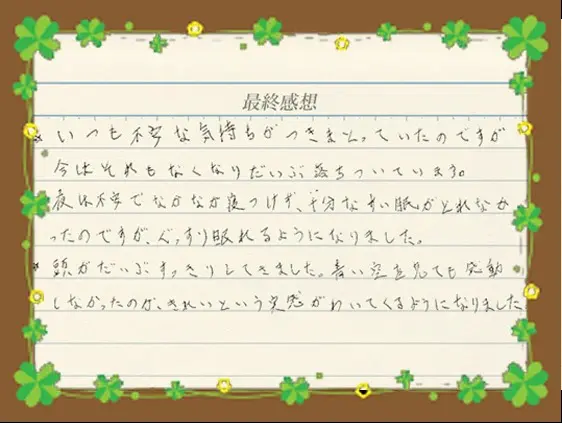 最終感想
いつも不安な気持ちがつきまとっていたのですが
今はそれもなくなりだいぶ落ちついています。
夜は不安でなかなか寝つけず、十分なすい眠がとれなか
ったのですが、ぐっすり眠れるようになりました。
頭がだいぶすっきりしてきました。青い空を見ても発動
しなかったのが、きれいという実感がわいてくるようになりました